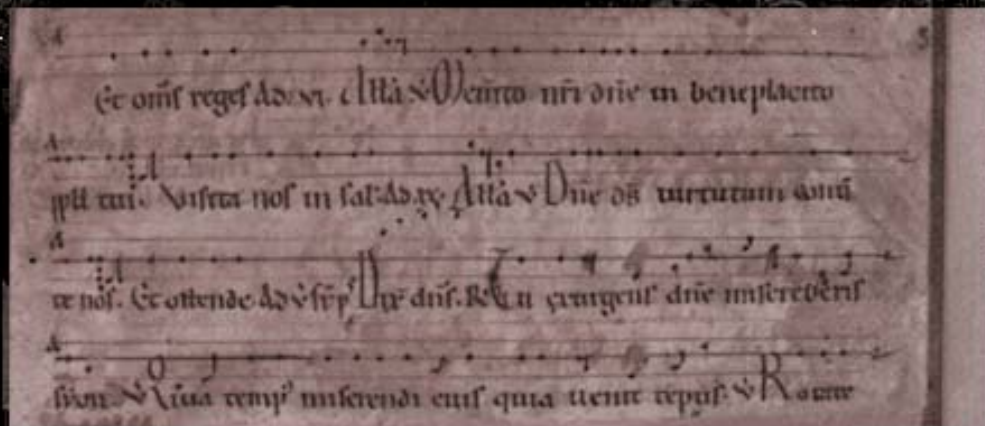 Et om̄s reges ad.vi. Alłã v̄ Mem̄to nr̄i dn̄e in beneplacito
ppłi tui. Visita nos in sal. ad.ix. Alłã v̄ Dn̄e ds̄ uirtutum
te nos. Et ostende. ad v̄sr̄p̄ dn̄s. Tu exurgens dn̄e misereberis
syon. v̄ Quia temp miserendi eius quia uenit tēpus. v̄ Rorate